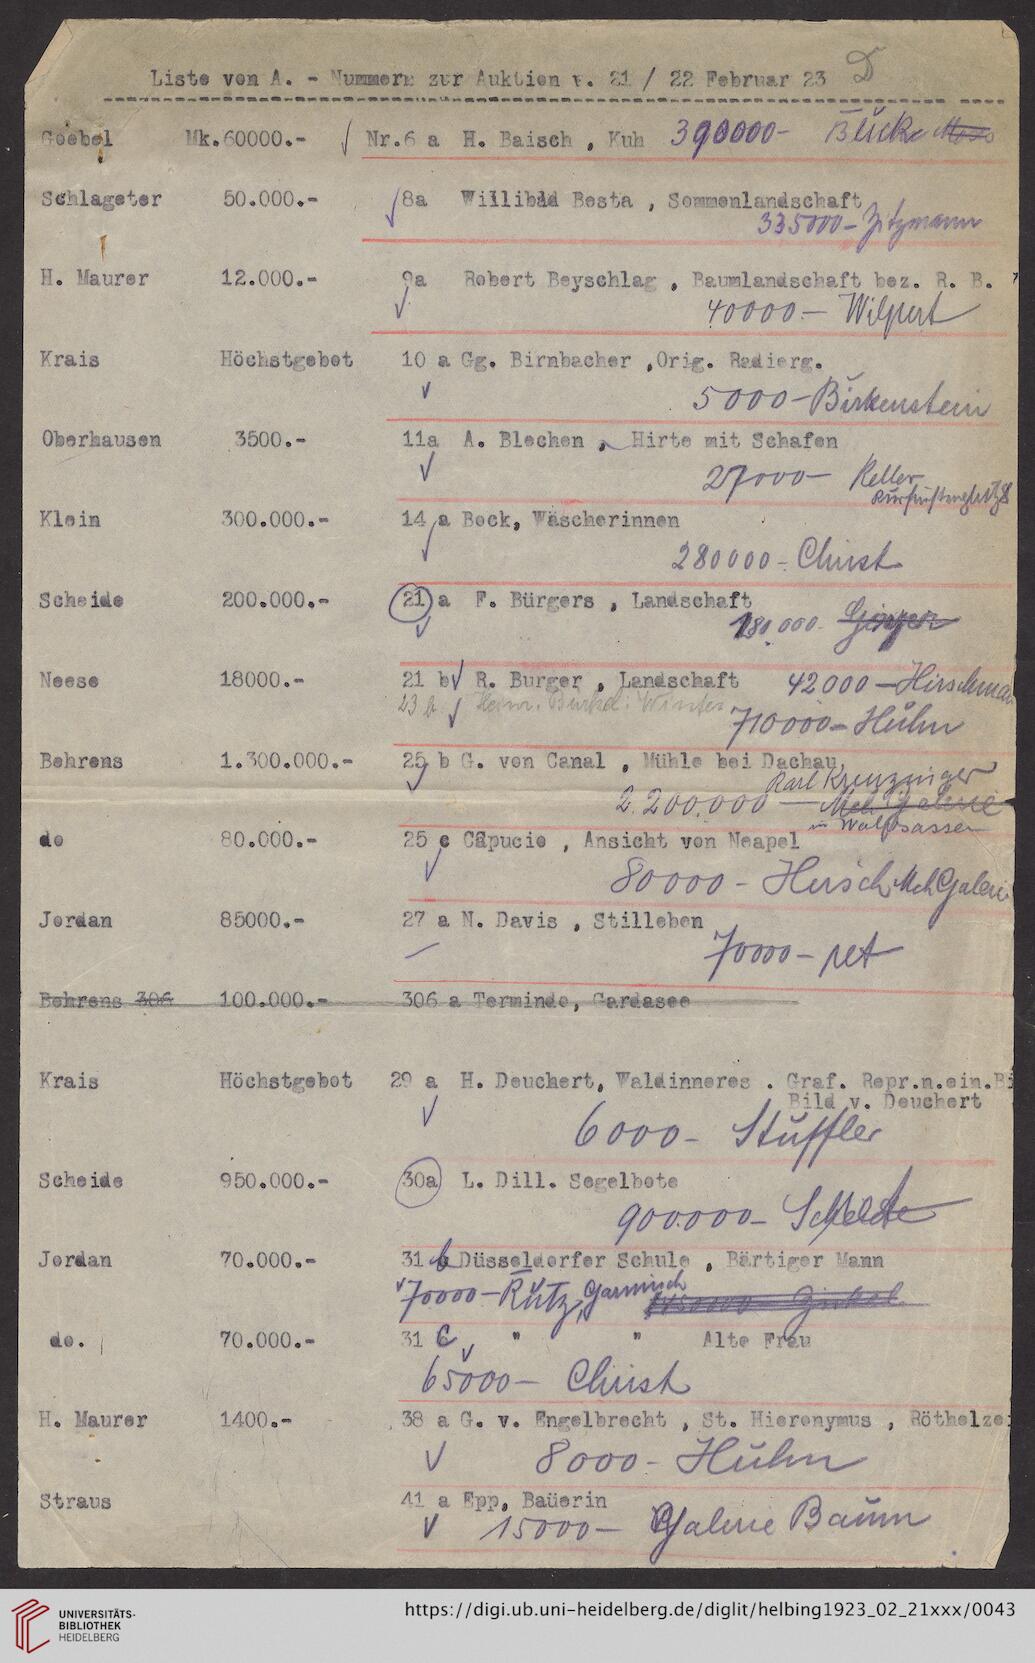 Liste von A. - Nummern zur Auktion v. 21 / 22 Februar 23 D
Goebel Mk.60000.- Nr.6 a H. Baisch , Kuh 390000-
Schlageter 50.000.- 8a Willibad Besta , Sommenlandschaft
335000 - Zitzmann
H. Maurer 12.000.- 9a Robert Beyschlag , Baumlandschaft bez. R. B.
40000.- Wilpert
Krais Höchstgebot 10 a Gg. Birnbacher ,Orig. Radierg.
5000 - Birkenstein
Oberhausen 3500.- 11a A. Blechen , Hirte mit Schafen
27000 - Keller
Klein 300.000.- 14 a Bock, Wäscherinnen
280000 - Christ
Scheide 200.000.- 21 a F. Bürgers , Landschaft
180.000-
Neese 18000.- 21 b R. Burger , Landschaft 42000 - Hirschma
23 a Heinr. Burkel: Winter 710000 - Huhn
Behrens 1.300.000.- 25 b G. von Canal , Mühle bei Dachau,
Karl Kreuzinger
2.200.000 - Mch. Galerie
in Waldsassen
do 80.000.- 25 c Capucio , Ansicht von Neapel
80000 - Hirsch Mch Galeri
Jordan 85000.- 27 a N. Davis , Stilleben
70000 - ret
Behrens 306 100.000.- 306 a Terminde, Gardasee
Krais Höchstgebot 29 a H. Deuchert, Waldinneres . Graf. Repr.n.ein.Bi
Bild v. Deuchert
6000 - Stuffler
Scheide 950.000.- 30a L. Dill. Segelbote
900.000 -
Jordan 70.000.- 31 b Düsseldorfer Schule , Bärtiger Mann
70000 - Rutz, Garmisch
do. 70.000.- 31 C " " Alte Frau
65000 - Christ
H. Maurer 1400.- 38 a G. v. Engelbrecht , St. Hieronymus , Röthelze
8000 - Huhn
Straus 41 a Epp, Baüerin
15000 - Galerie Baum
UNIVERSITÄTS-
BIBLIOTHEK
HEIDELBERG
https://digi.ub.uni-heidelberg.de/diglit/helbing1923_02_21xxx/0043